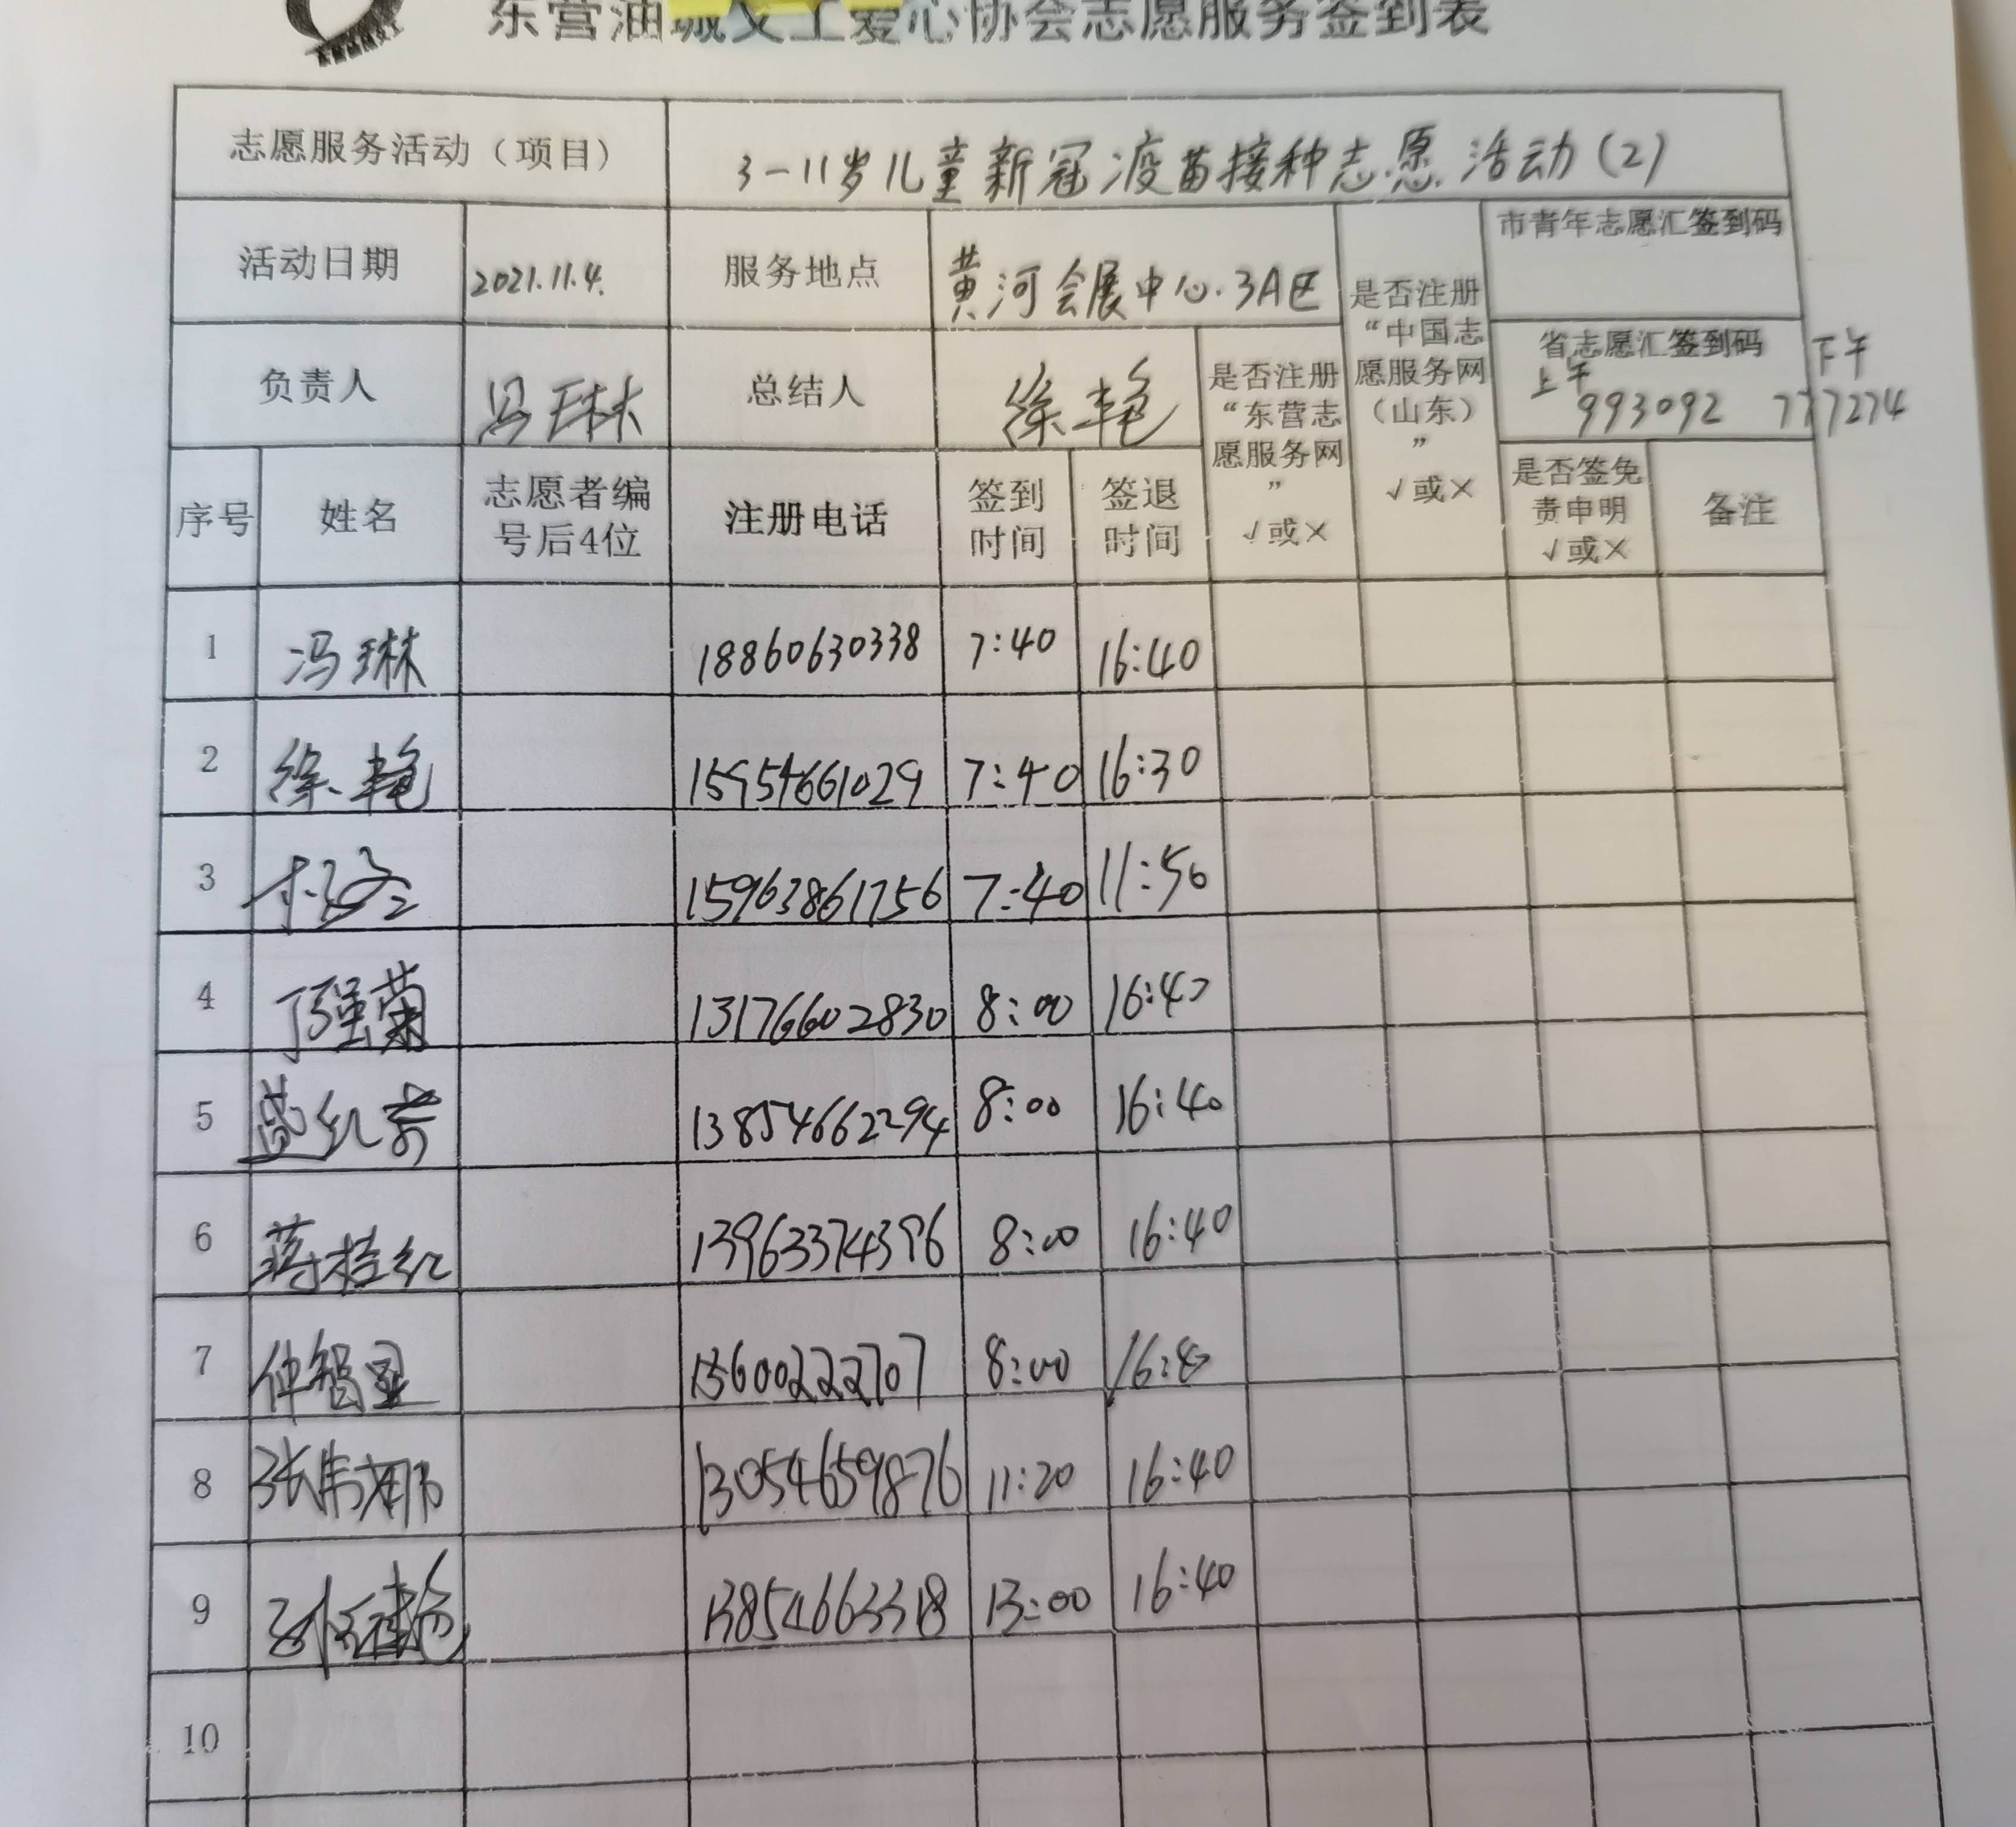 东营油城义工爱心协会志愿服务签到表
志愿服务活动（项目） 3-11岁儿童新冠疫苗接种志愿活动(2)
活动日期 2021.11.4. 服务地点 黄河会展中心.3A区 是否注册“中国志愿服务网（山东）” √或× 市青年志愿汇签到码
负责人 冯琳 总结人 徐艳 是否注册“东营志愿服务网” √或× 省志愿汇签到码 上午 993092 下午 777274
序号 姓名 志愿者编号后4位 注册电话 签到时间 签退时间 是否签免责申明 √或× 备注
1 冯琳 18860630338 7:40 16:40
2 徐艳 15954661029 7:40 16:30
3 15963861756 7:40 11:50
4 丁强菊 13176602830 8:00 16:40
5 13854662294 8:00 16:40
6 蒋桂红 13963374396 8:00 16:40
7 8:00
8 张伟娜 13054659876 11:20 16:40
9 13854663318 13:00 16:40
10